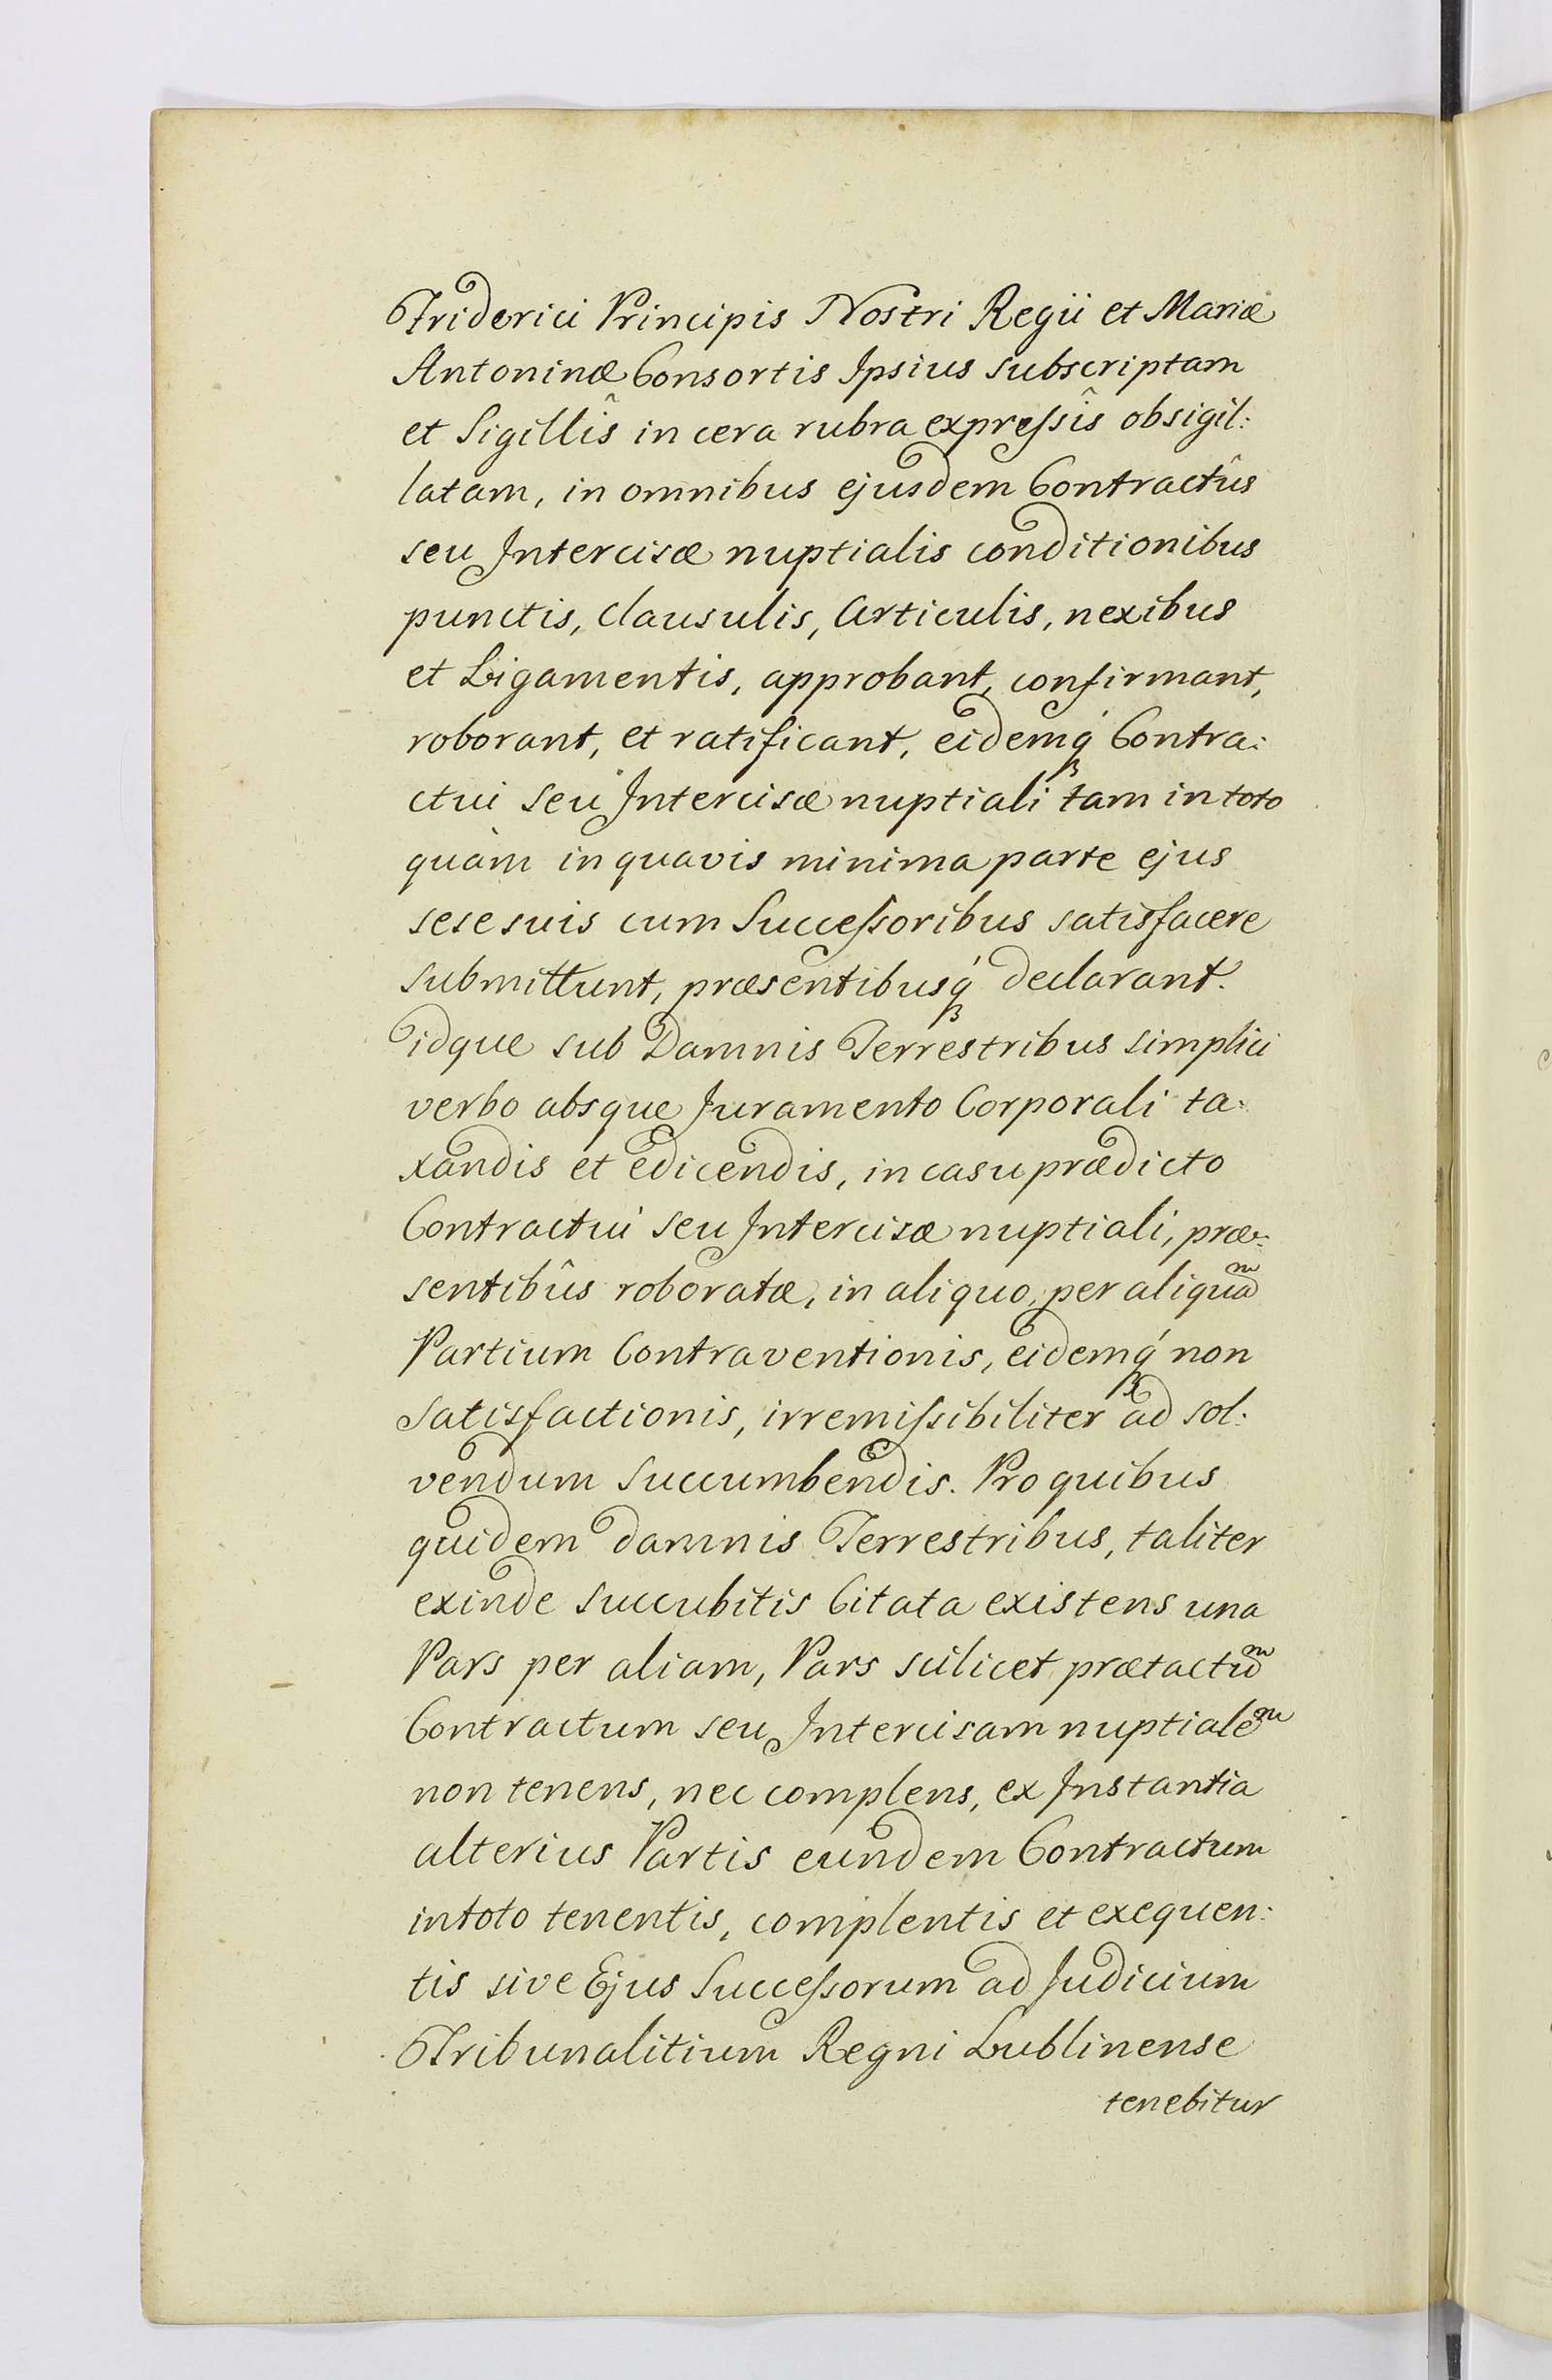 Friderici Principis Nostri Regii et Mariæ
Antoninæ Consortis Ipsius subscriptam
et Sigillîs in cera rubra expreſsîs obsigil:
latam, in omnibus ejusdem Contractûs
seu Intercisæ nuptialis conditionibus
punctis, Clausulis, Articulis, nexibus
et Ligamentis, approbant, confirmant,
roborant, et ratificant, eidemq́ꝫ Contra:
ctui seu Intercisæ nuptiali tam in toto
quàm in quavis minima parte ejus
sese suis cum Succeſsoribus satisfacere
submittunt, præsentibusq́ꝫ declarant.
idque sub Damnis Terrestribus simplici
verbo absque Juramento Corporali ta:
xandis et edicendis, in casu prædicto
Contractui seu Intercisæ nuptiali, præ:
sentibûs roboratæ, in aliquo, per aliquaᵐ
Partium Contraventionis, eidemq́ꝫ non
Satisfactionis, irremiſsibiliter ad sol:
vendum succumbendis. Pro quibus
quidem damnis Terrestribus, taliter
exinde succubitis Citata existens una
Pars per aliam, Pars scilicet prætactuᵐ
Contractum seu Intercisam nuptialeᵐ
non tenens, nec complens, ex Instantia
alterius Partis eundem Contractum
in toto tenentis, complentis et exequen:
tis sive Ejus Succeſsorum ad Judicium
Tribunalitium Regni Lublinense
tenebitur